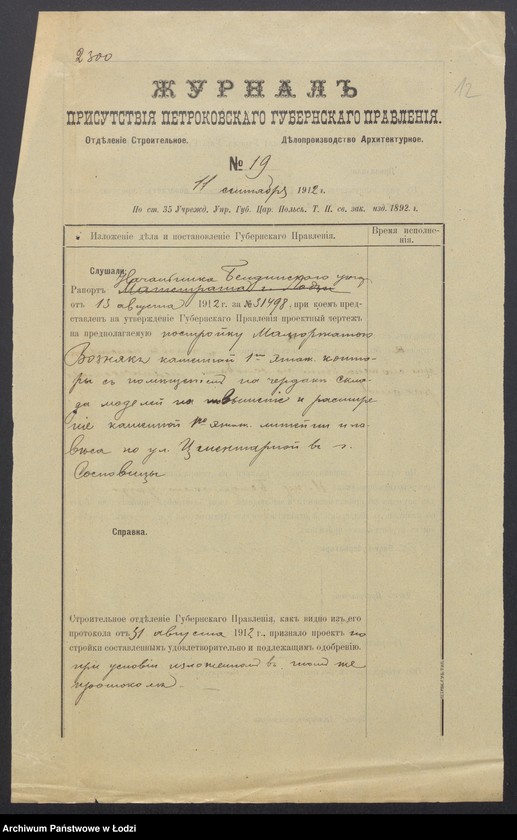 2300
12
ЖУРНАЛЪ
ПРИСУТСТВІЯ ПЕТРОКОВСКАГО ГУБЕРНСКАГО ПРАВЛЕНІЯ.
Отдѣленіе Строительное. Дѣлопроизводство Архитектурное.
№ 19
11 сентября 1912 г.
По ст. 35 Учрежд. Упр. Губ. Цар. Польск. Т. II. св. зак. изд. 1892. г.
Изложеніе дѣла и постановленіе Губернскаго Правленія. Время исполне-
нія.
Слушали: Начальника Бендинскаго уѣзда
Рапортъ Магистрата г. Лодзи
отъ 13 августа 1912 г. за № 31498, при коемъ пред-
ставленъ на утвержденіе Губернскаго Правленія проектный чертежъ
на предполагаемую постройку
Вознякъ каменной 1 этаж. конто-
ры съ помѣщ. на чердакѣ скла-
да моделей и расшире
ніе каменной этаж. литейни и на-
вѣса по ул. Цементарной въ г.
Сосновицы
Справка.
Строительное отдѣленіе Губернскаго Правленія, какъ видно изъ его
протокола отъ 31 августа 1912 г., признало проектъ по
стройки составленнымъ удовлетворительно и подлежащимъ одобренію.
при условіи изложенномъ въ томъ же
протоколѣ.
Archiwum Państwowe w Łodzi